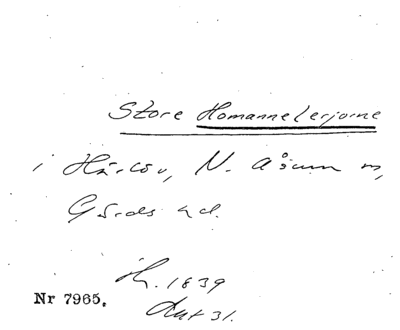 Store Homannelerjorne
i Härlöv, N. Åsum sn,
Gärds hd.
1839
Nr 7965. Akt 31.